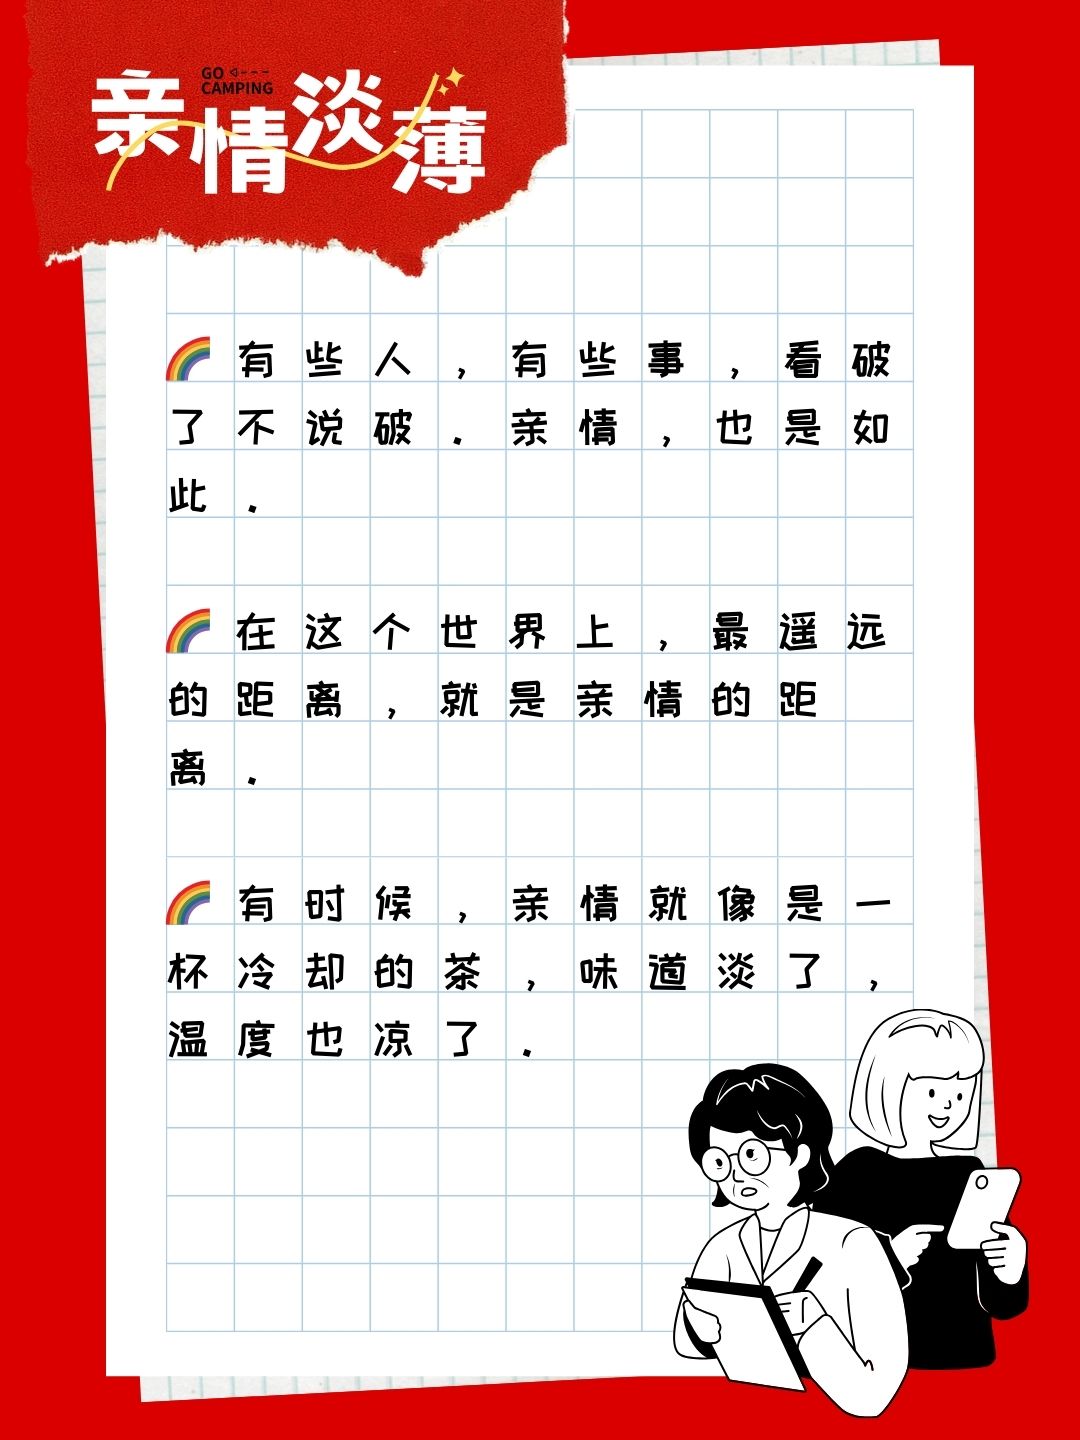 亲情淡薄
GO
CAMPING
🌈有些人，有些事，看破
了不说破．亲情，也是如
此．
🌈在这个世界上，最遥远
的距离，就是亲情的距
离．
🌈有时候，亲情就像是一
杯冷却的茶，味道淡了，
温度也凉了．